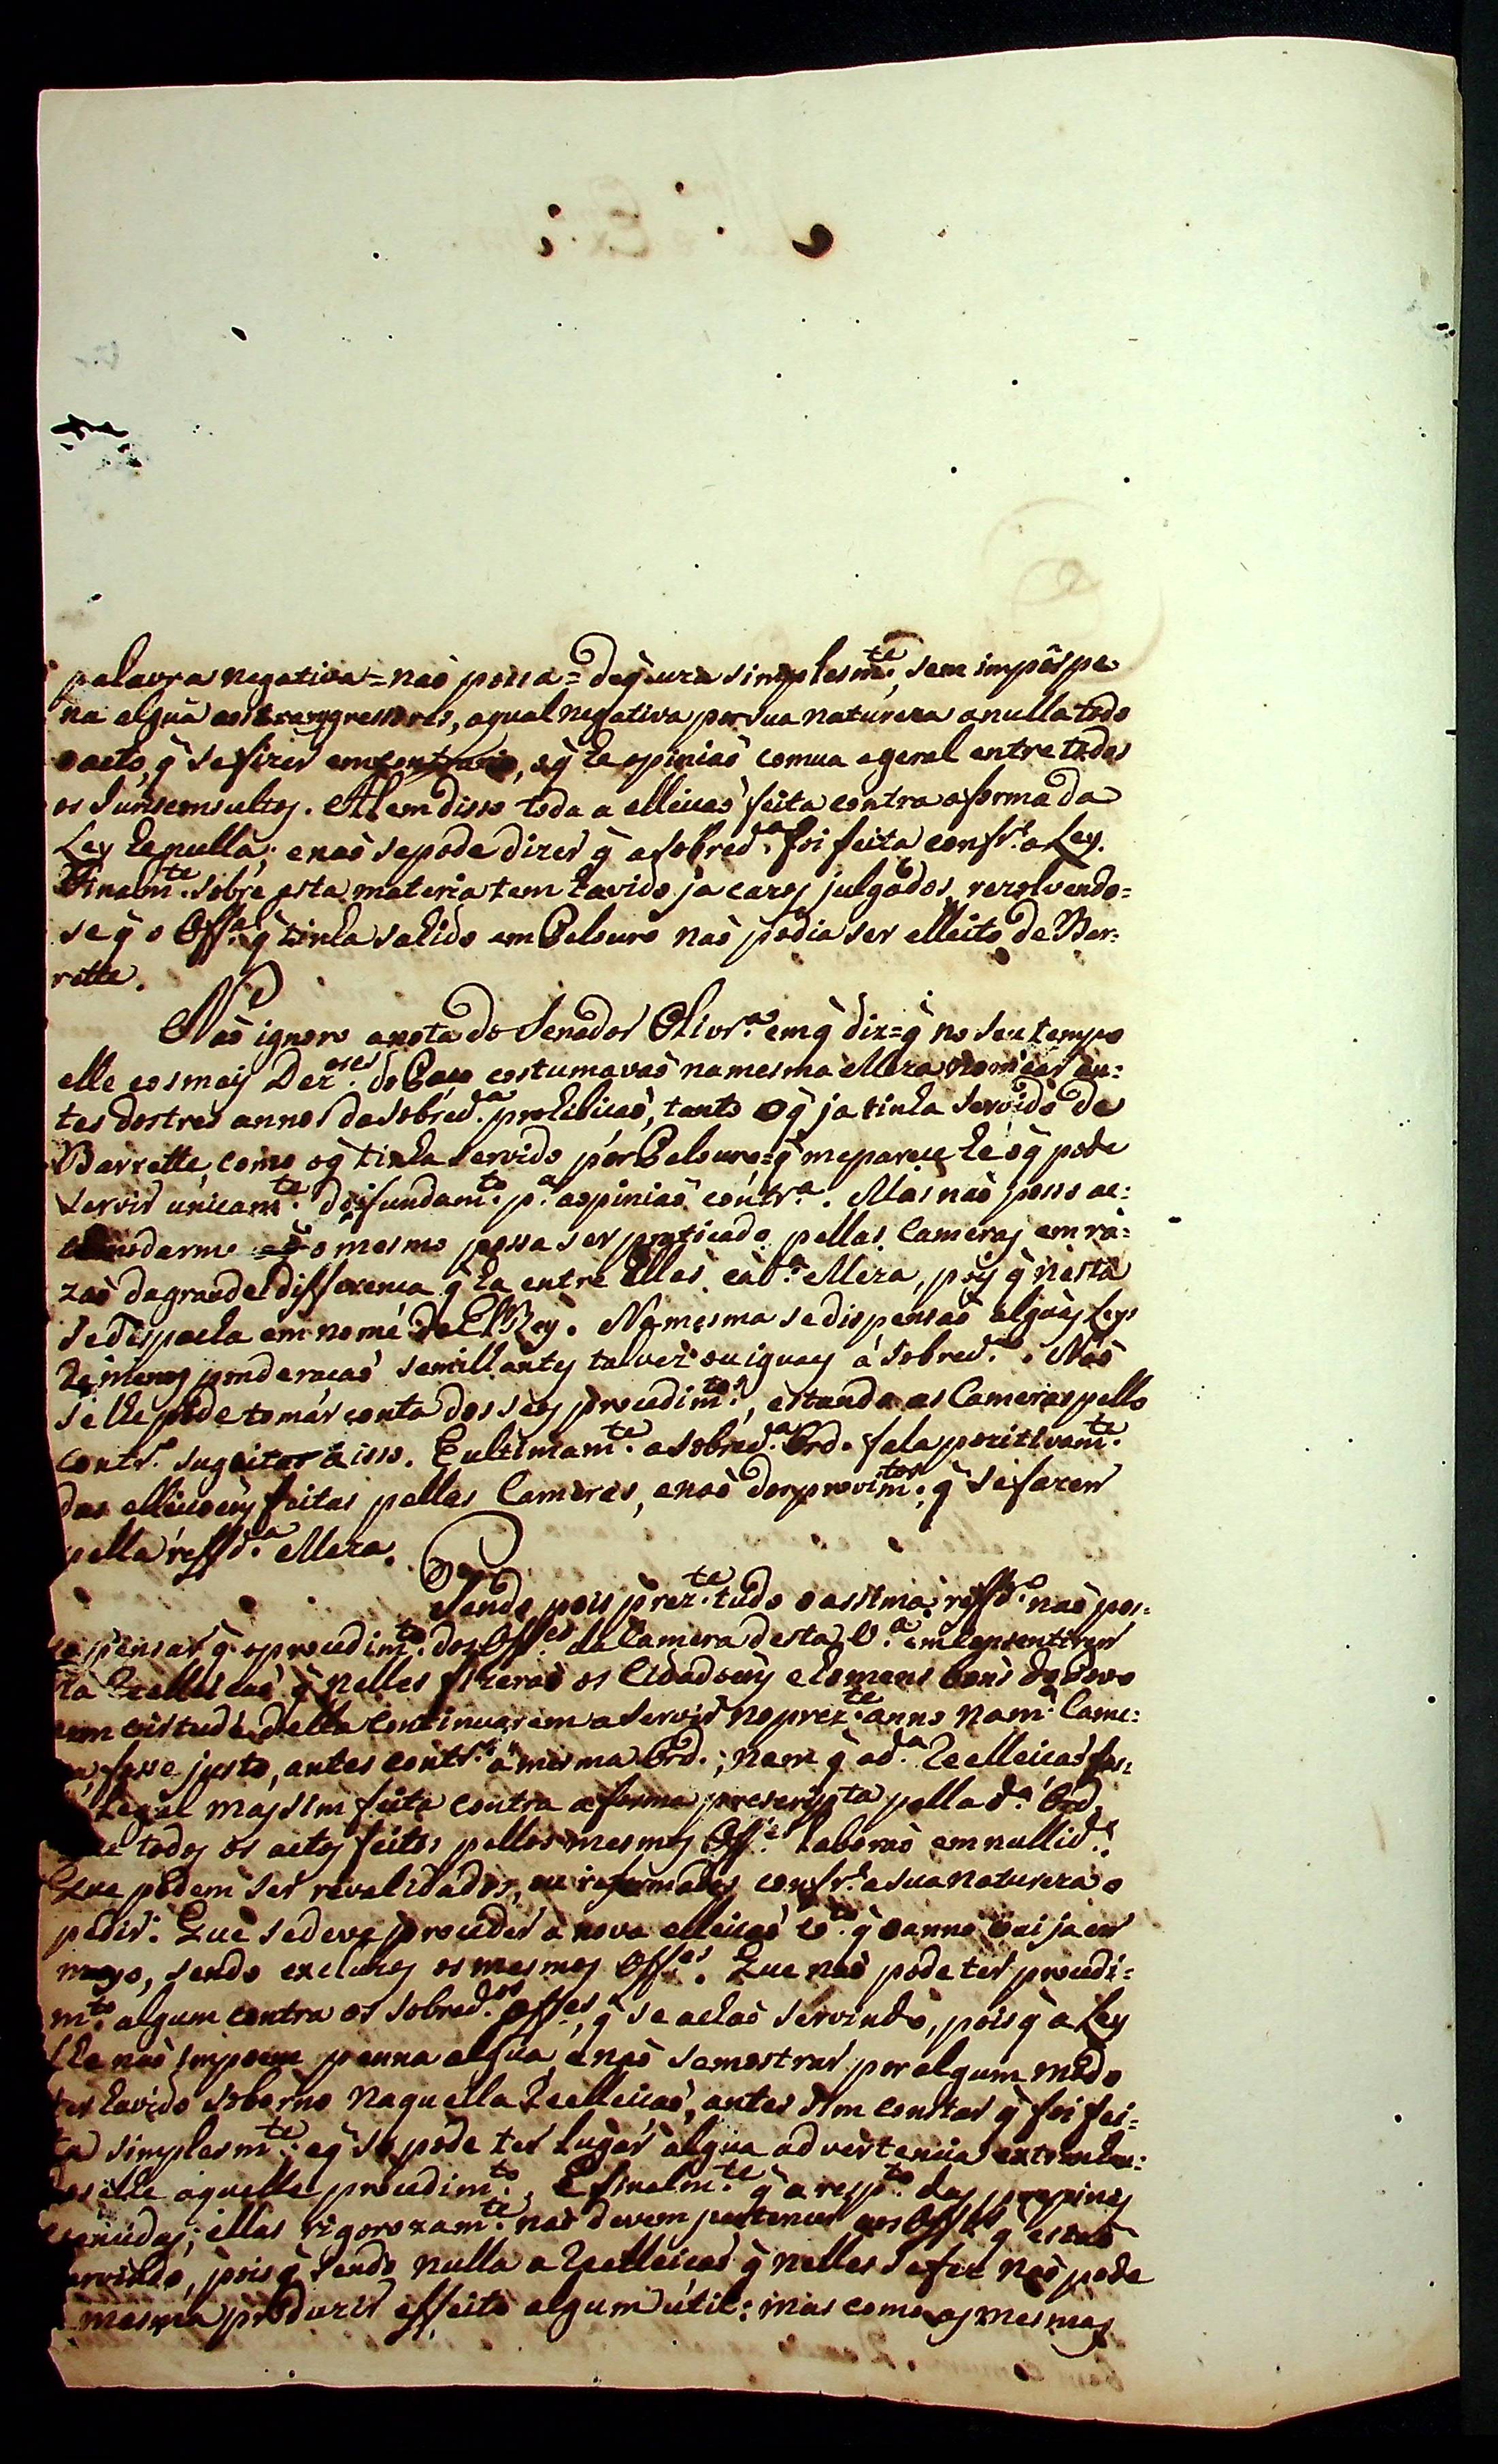 palavra negativa = naõ possa = deq̃ uza simplesm.te, sem impôr pe
na algũa aos transgressores, aqual negativa por sua natureza anulla todo
o acto, q̃ se fizer em contrario, eq̃ he opiniaõ comua e geral entre todos
os Jurisconsultos. Alem disso toda a elleicaõ feita contra a forma da
Ley he nulla; e naõ se pode dizer q̃ a sobred.a foi feita confr.e a Ley.
Finalm.te sobre esta materia tem havido ja cazos julgados, rezolvendo=
se q̃ o Off.al q̃ tinha sahido em Pelouro naõ podia ser elleito de Bar=
rette.
Naõ ignoro a nota do Senador Olivr.a em q̃ diz = q̃ no seu tempo
elle e os mais Dez.ores do Paço costumavaõ na mesma Meza nomear an=
tes dos tres annos da sobred.a prohibicaõ, tanto o q̃ ja tinha servido de
Barrette, como o q̃ tinha servido por Pelouro = q̃ me parece he o q̃ pode
servir unicam.te de fundam.to p.a a opiniaõ contr.a. Mas naõ posso ac=
comodarme a q̃ o mesmo possa ser praticado pellas Cameras em ra=
zaõ da grande differença q̃ ha entre ellas e a d.a Meza, pois q̃ nesta
se despacha em nome de ElRey. Na mesma se dispensaõ algũas Leys
de menos ponderacaõ semilhantes talvez ou iguaes á sobred.a. Naõ
se lhe pode tomar conta dos seos procedim.tos, estando as Cameras pello
contr.o sugeitas a isso. E ultimam.te a sobred.a Ord. fala pozitivam.te
das elleicoens feitas pellas Cameras, e naõ dos provim.tos q̃ se fazem
pella reffd.a Meza.
Tendo pois prez.te tudo o assima reffd.o naõ pos=
so pensar q̃ o procedim.to dos Off.es da Camera desta V.a em consentirem
na Reelleicaõ q̃ nelles fizeraõ os Cidadoens e homens bons do Povo
e em virtude della continuarem a servir no prez.te anno na m.a Came=
ra, fosse justo, antes contr.o á mesma Ord.; nem q̃ a d.a Reelleicaõ fos=
Legal mas sim feita contra a forma prescripta pella d.a Ord.
todos os actos feitos pellos mesmos Off.es laboraõ em nullid.e
Que podem ser revalidados, ou reformados confr.e a sua natureza o
pedir: Que se deve proceder a nova elleicaõ v.to q̃ o anno vai ja em
meyo, sendo excluzos os mesmos Off.es. Que naõ pode ter procedi=
m.to algum contra os sobred.os Off.es, q̃ se achaõ servindo, pois q̃ a Ley
lhe naõ impoem penna algũa, e naõ se mostrar por algum modo
ter havido soborno naquella Reelleicaõ, antes sim constar q̃ foi fei=
ta simplesm.te; e q̃ só pode ter lugar algũa advertencia
aquelle procedim.to. E finalm.te q̃ a resp.to das propinas
vencidas; ellas rigorozam.te naõ devem pertencer aos Off.es q̃ estaõ
servindo, pois q̃ sendo nulla a Reelleicaõ q̃ nelles se fez naõ pode
a mesma produzir effeito algum útil: mas como as mesmas